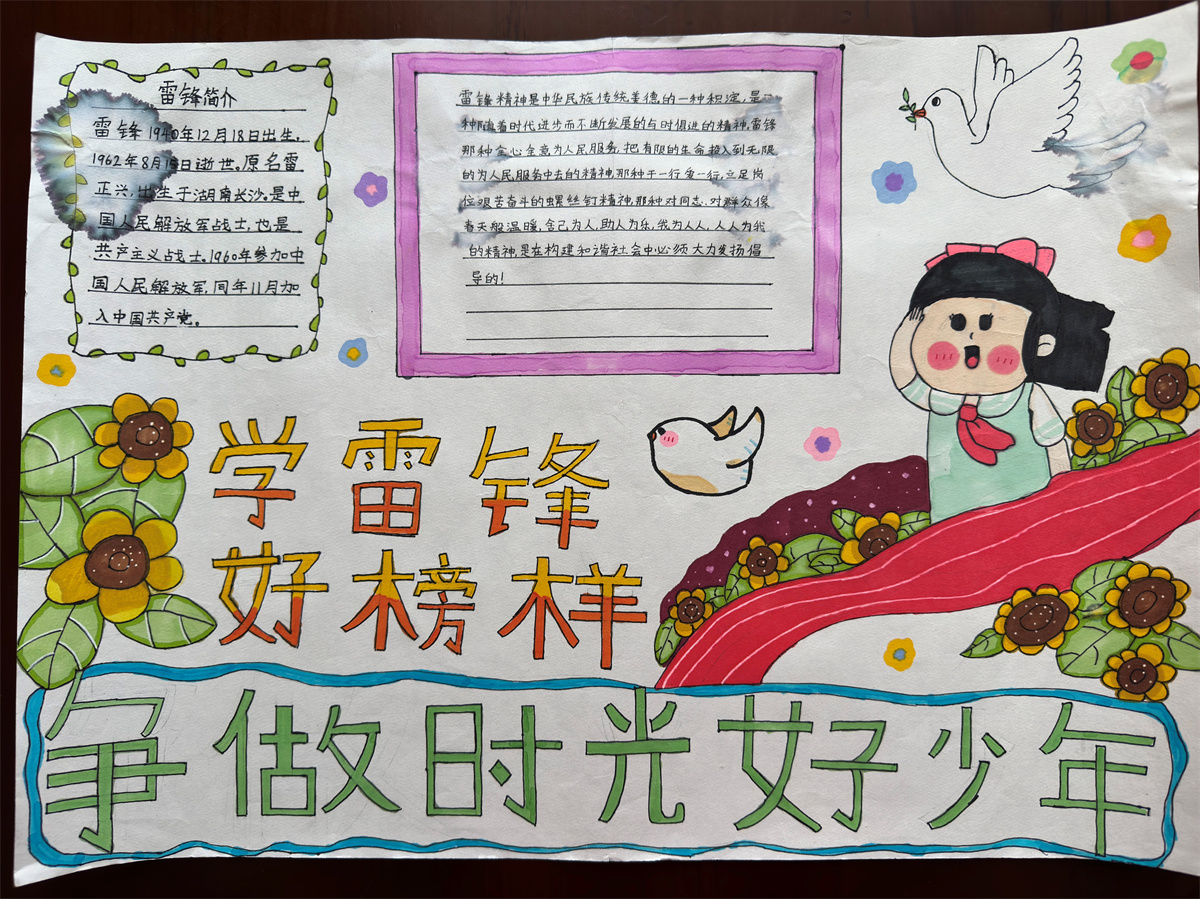 雷锋简介
雷锋1940年12月18日出生.
1962年8月15日逝世.原名雷
正兴,出生于湖南长沙.是中
国人民解放军战士,也是
共产主义战士。1960年参加中
国人民解放军,同年11月加
入中国共产党。
雷锋精神是中华民族传统美德的一种积淀,是一
种随着时代进步而不断发展的与时俱进的精神.雷锋
那种全心全意为人民服务,把有限的生命投入到无限
的为人民服务中去的精神,那种干一行爱一行,立足岗
位艰苦奋斗的螺丝钉精神,那种对同志.对群众像
春天般温暖,舍己为人,助人为乐,我为人人,人人为我
的精神,是在构建和谐社会中必须大力发扬倡
导的!
学雷锋
好榜样
争做时光好少年